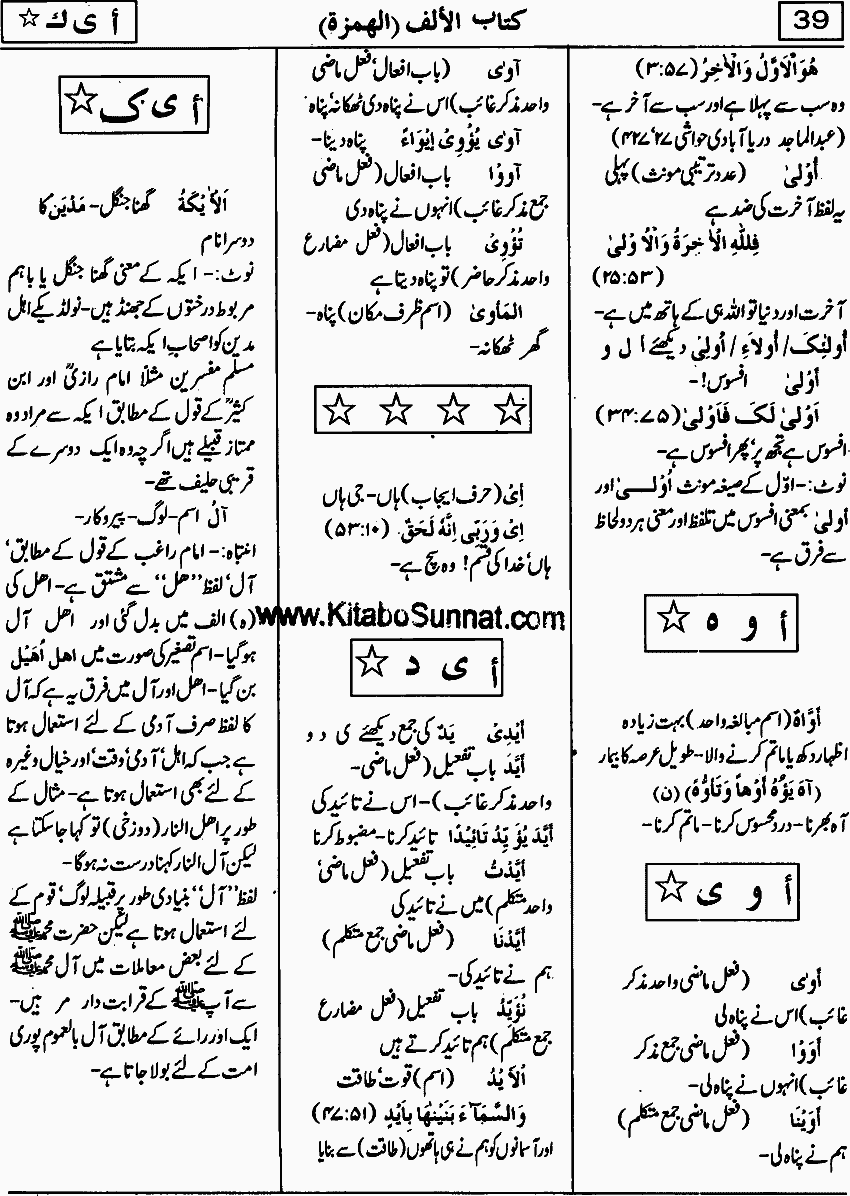 39
کتاب الألف (الهمزة)
أ ی ك ☆
هُوَ الْاَوَّلُ وَالْاٰخِرُ (۳:۵۷)
وہ سب سے پہلا ہے اور سب سے آخر ہے-
(عبدالماجد دریا آبادی حواشی ۲۷٬۴۲۷)
أُوْلیٰ (عدد ترتیبی مونث) پہلی
یہ لفظ آخرت کی ضد ہے
فَلِلّٰهِ الْاٰخِرَةُ وَالْاُوْلیٰ
(۲۵:۵۳)
آخرت اور دنیا تو اللہ ہی کے ہاتھ میں ہے-
أُولٰئِکَ/ أُولاَءِ/ أُولِیْ دیکھئے ا ل و
أَوْلیٰ افسوس!-
اَوْلیٰ لَکَ فَاَوْلیٰ (۳۴:۷۵)
افسوس ہے تجھ پر٬ پھر افسوس ہے-
نوٹ:- اوّل کے صیغہ مونث أُوْلــیٰ اور
أولیٰ بمعنی افسوس میں تلفظ اور معنی ہر دو لحاظ
سے فرق ہے-
أ و ہ ☆
أَوَّاہٌ (اسم مبالغہ واحد) بہت زیادہ
اظہار دکھ یا ماتم کرنے والا- طویل عرصہ کا بیمار
(آہَ یَؤُہُ أَوْهاً وَتَاوُّہُ) (ن)
آہ بھرنا- درد محسوس کرنا- ماتم کرنا-
أ و ی ☆
أَوٰی (فعل ماضی واحد مذکر
غائب) اس نے پناہ لی
أَوَوْا (فعل ماضی جمع مذکر
غائب) انہوں نے پناہ لی-
أَوَیْنَا (فعل ماضی جمع متکلم)
ہم نے پناہ لی-
آوٰی (باب افعال٬ فعل ماضی
واحد مذکر غائب) اس نے پناہ دی ٹھکانہ٬ پناہ
آوٰی یُؤْوِیْ اِیْوَاءً پناہ دینا-
آوَوْا باب افعال (فعل ماضی
جمع مذکر غائب) انہوں نے پناہ دی
تُؤْوِیْ باب افعال (فعل مضارع
واحد مذکر حاضر) تو پناہ دیتا ہے
المَأویٰ (اسم ظرف مکان) پناہ-
گھر ٹھکانہ-
☆ ☆ ☆ ☆
اِیْ (حرف ایجاب) ہاں- جی ہاں
اِیْ وَرَبِّی اِنَّهٗ لَحَقّ. (۵۳:۱۰)
ہاں٬ خدا کی قسم! وہ سچ ہے-
www.KitaboSunnat.com
أ ی د ☆
أَیْدِیْ یَدٌ کی جمع دیکھئے ی د و
أَیَّدَ باب تفعیل (فعل ماضی-
واحد مذکر غائب)- اس نے تائید کی
أَیَّدَ یُؤَیِّدُ تَائِیْدًا تائید کرنا- مضبوط کرنا
أَیَّدْتُ باب تفعیل (فعل ماضی٬
واحد متکلم) میں نے تائید کی
أَیَّدْنَا (فعل ماضی جمع متکلم)
ہم نے تائید کی-
نُؤَیِّدُ باب تفعیل (فعل مضارع
جمع متکلم) ہم تائید کرتے ہیں
اَلْاَیْدُ (اسم) قوت٬ طاقت
وَالسَّمَآءَ بَنَیْنٰهَا بِاَیْدٍ (۴۷:۵۱)
اور آسمانوں کو ہم نے ہی ہاتھوں (طاقت) سے بنایا
أ ی ک ☆
اَلْاَیْکَةُ گھنا جنگل- مَدْیَن کا
دوسرا نام
نوٹ:- ایکہ کے معنی گھنا جنگل یا باہم
مربوط درختوں کے جھنڈ ہیں- نولڈیکے اہل
مدین کو اصحاب ایکہ بتایا ہے
مسلم مفسرین مثلاً امام رازیؒ اور ابن
کثیرؒ کے قول کے مطابق ایکہ سے مراد وہ
ممتاز قبیلے ہیں اگرچہ وہ ایک دوسرے کے
قریبی حلیف تھے-
آلُ اسم- لوگ- پیروکار-
انتباہ:- امام راغب کے قول کے مطابق٬
آل٬ لفظ ”هل“ سے مشتق ہے- اهل کی
(ہ) الف میں بدل گئی اور اهل آل
ہوگیا- اسم تصغیر کی صورت میں اهل اُهَیْل
بن گیا- اهل اور آل میں فرق یہ ہے کہ آل
کا لفظ صرف آدمی کے لئے استعمال ہوتا
ہے جب کہ اہل٬ آدمی٬ وقت٬ اور خیال وغیرہ
کے لئے بھی استعمال ہوتا ہے- مثال کے
طور پر اهل النار (دوزخی) تو کہا جا سکتا ہے
لیکن آل النار کہنا درست نہ ہوگا-
لفظ ”آل“ بنیادی طور پر قبیلہ لوگ٬ قوم کے
لئے استعمال ہوتا ہے لیکن حضرت محمد ﷺ
کے لئے بعض معاملات میں آل محمد ﷺ
سے آپ ﷺ کے قرابت دار مر ہیں-
ایک اور رائے کے مطابق آل بالعموم پوری
امت کے لئے بولا جاتا ہے-